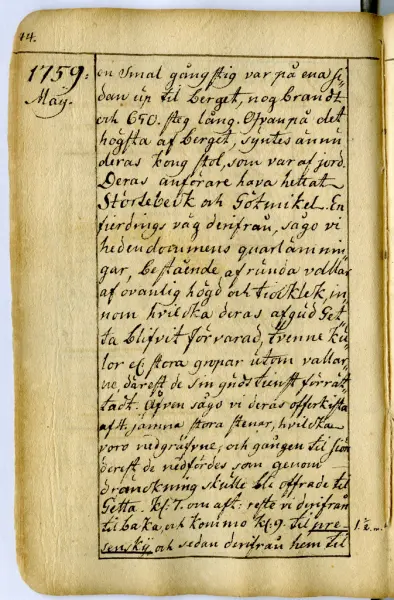 14.
1759.
May.
en smal gångstig var på ena si„
dan up til berget, nog brandt
och 650. steg lång. Ofvanpå det
högsta af berget, syntes ännu
deras kong stol, som var af jord.
Deras anförare hava hettat
Störtebeck och Götmikel. En
fierdings väg derifrån, sågo vi
hedendommens quarlämnin„
gar, bestående af runda vallar
af ovanlig högd och tiocklek, in„
nom hvilcka deras afgud Get„
ta blifvit förvarad, trenne ku„
lor el stora gropar utom vallar„
ne, därest de sin gudstienst förrät„
tadt. Äfven sågo vi deras offerkista
af 4. jämna stora stenar, hvilcka
voro nedgräfvne, och gången til siön
derest de nedfördes som genom
dränckning skulle bli offrade til
Getta. Kl: 7. om aft: reste vi derifrån
tilbaka, och kommo kl: 9. til pre„
senskij och sedan derifrån hem til
1 ½ m.